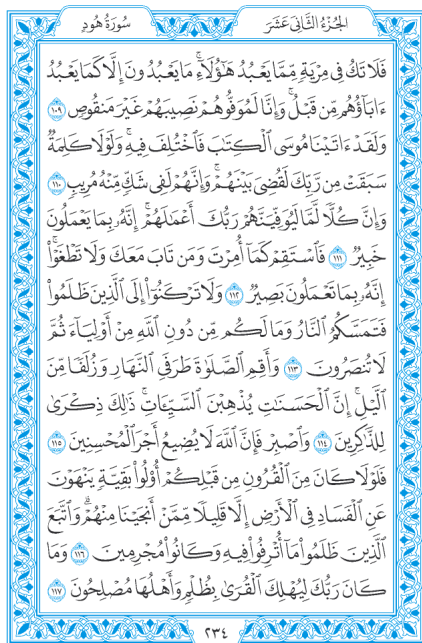 الجُزْءُ الثَّانِي عَشَرَ سُورَةُ هُودٍ
فَلَا تَكُ فِي مِرْيَةٍ مِّمَّا يَعْبُدُ هَٰٓؤُلَآءِۚ مَا يَعْبُدُونَ إِلَّا كَمَا يَعْبُدُ
ءَابَآؤُهُم مِّن قَبْلُۚ وَإِنَّا لَمُوَفُّوهُمْ نَصِيبَهُمْ غَيْرَ مَنقُوصٍ ١٠٩
وَلَقَدْ ءَاتَيْنَا مُوسَى ٱلْكِتَٰبَ فَٱخْتُلِفَ فِيهِۚ وَلَوْلَا كَلِمَةٌ
سَبَقَتْ مِن رَّبِّكَ لَقُضِيَ بَيْنَهُمْۚ وَإِنَّهُمْ لَفِي شَكٍّ مِّنْهُ مُرِيبٍ ١١٠
وَإِنَّ كُلًّا لَّمَّا لَيُوَفِّيَنَّهُمْ رَبُّكَ أَعْمَٰلَهُمْۚ إِنَّهُۥ بِمَا يَعْمَلُونَ
خَبِيرٌ ١١١ فَٱسْتَقِمْ كَمَآ أُمِرْتَ وَمَن تَابَ مَعَكَ وَلَا تَطْغَوْا۟ۚ
إِنَّهُۥ بِمَا تَعْمَلُونَ بَصِيرٌ ١١٢ وَلَا تَرْكَنُوٓا۟ إِلَى ٱلَّذِينَ ظَلَمُوا۟
فَتَمَسَّكُمُ ٱلنَّارُ وَمَا لَكُم مِّن دُونِ ٱللَّهِ مِنْ أَوْلِيَآءَ ثُمَّ
لَا تُنصَرُونَ ١١٣ وَأَقِمِ ٱلصَّلَوٰةَ طَرَفَيِ ٱلنَّهَارِ وَزُلَفًا مِّنَ
ٱلَّيْلِۚ إِنَّ ٱلْحَسَنَٰتِ يُذْهِبْنَ ٱلسَّيِّـَٔاتِۚ ذَٰلِكَ ذِكْرَىٰ
لِلذَّٰكِرِينَ ١١٤ وَٱصْبِرْ فَإِنَّ ٱللَّهَ لَا يُضِيعُ أَجْرَ ٱلْمُحْسِنِينَ ١١٥
فَلَوْلَا كَانَ مِنَ ٱلْقُرُونِ مِن قَبْلِكُمْ أُو۟لُوا۟ بَقِيَّةٍ يَنْهَوْنَ
عَنِ ٱلْفَسَادِ فِي ٱلْأَرْضِ إِلَّا قَلِيلًا مِّمَّنْ أَنجَيْنَا مِنْهُمْۗ وَٱتَّبَعَ
ٱلَّذِينَ ظَلَمُوا۟ مَآ أُتْرِفُوا۟ فِيهِ وَكَانُوا۟ مُجْرِمِينَ ١١٦ وَمَا
كَانَ رَبُّكَ لِيُهْلِكَ ٱلْقُرَىٰ بِظُلْمٍ وَأَهْلُهَا مُصْلِحُونَ ١١٧
٢٣٤